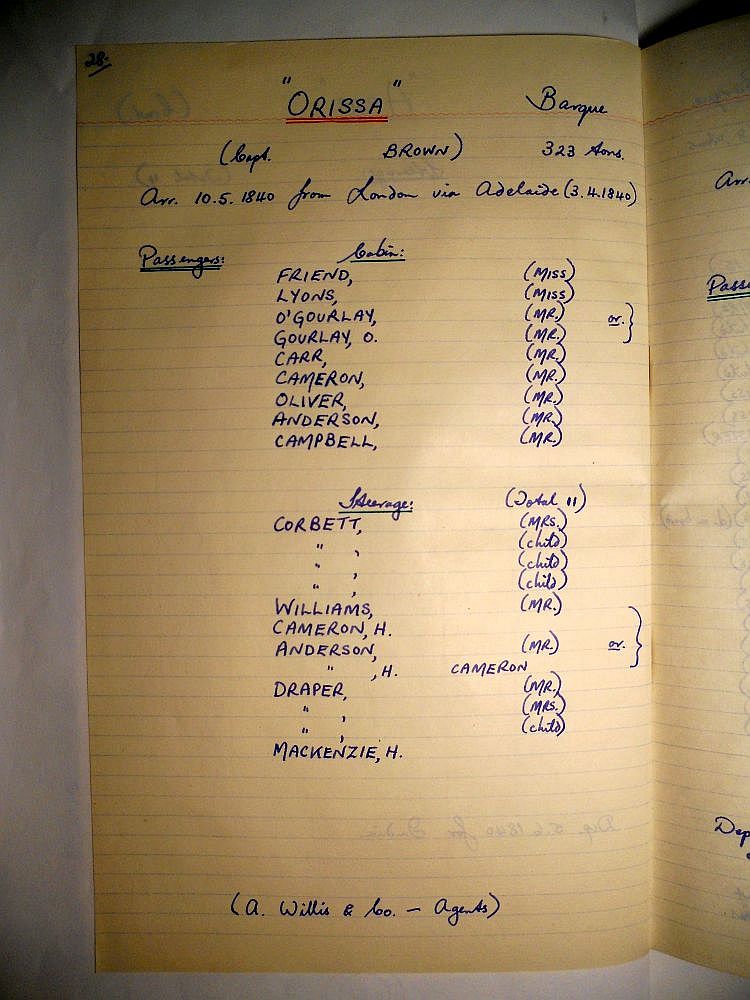 28.
"ORISSA" Barque
(Capt. BROWN) 323 Tons.
Arr. 10.5.1840 from London via Adelaide (3.4.1840)
Passengers: Cabin:
FRIEND, (MISS)
LYONS, (MISS)
O'GOURLAY, (MR.) or. }
GOURLAY, O. (MR.)
CARR, (MR.)
CAMERON, (MR.)
OLIVER, (MR.)
ANDERSON, (MR.)
CAMPBELL, (MR.)
Steerage: (Total 11)
CORBETT, (MRS.)
" , (child)
" , (child)
" , (child)
WILLIAMS, (MR.)
CAMERON, H.
ANDERSON, (MR.) or. }
" , H. CAMERON
DRAPER, (MR.)
" , (MRS.)
" , (child)
MACKENZIE, H.
(A. Willis & Co. — Agents)
Arr.
Passe
Dep